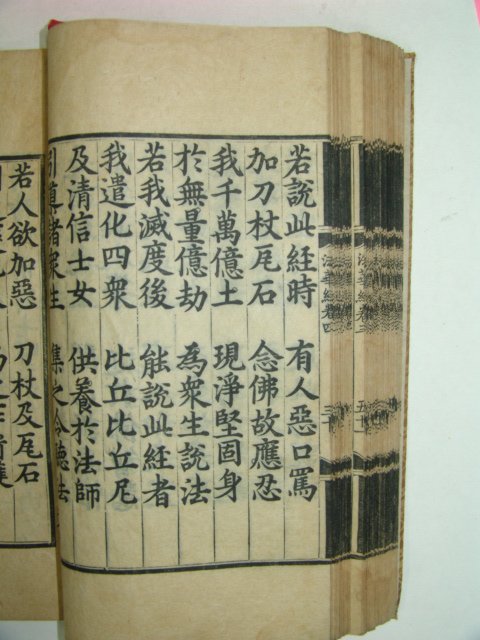 若說此經時 有人惡口罵
加刀杖瓦石 念佛故應忍
我千萬億土 現淨堅固身
於無量億劫 為衆生說法
若我滅度後 能說此經者
我遣化四衆 比丘比丘尼
及清信士女 供養於法師
引導諸衆生 集之令聽法
若人欲加惡 刀杖及瓦石
法華經卷三
法華經卷四